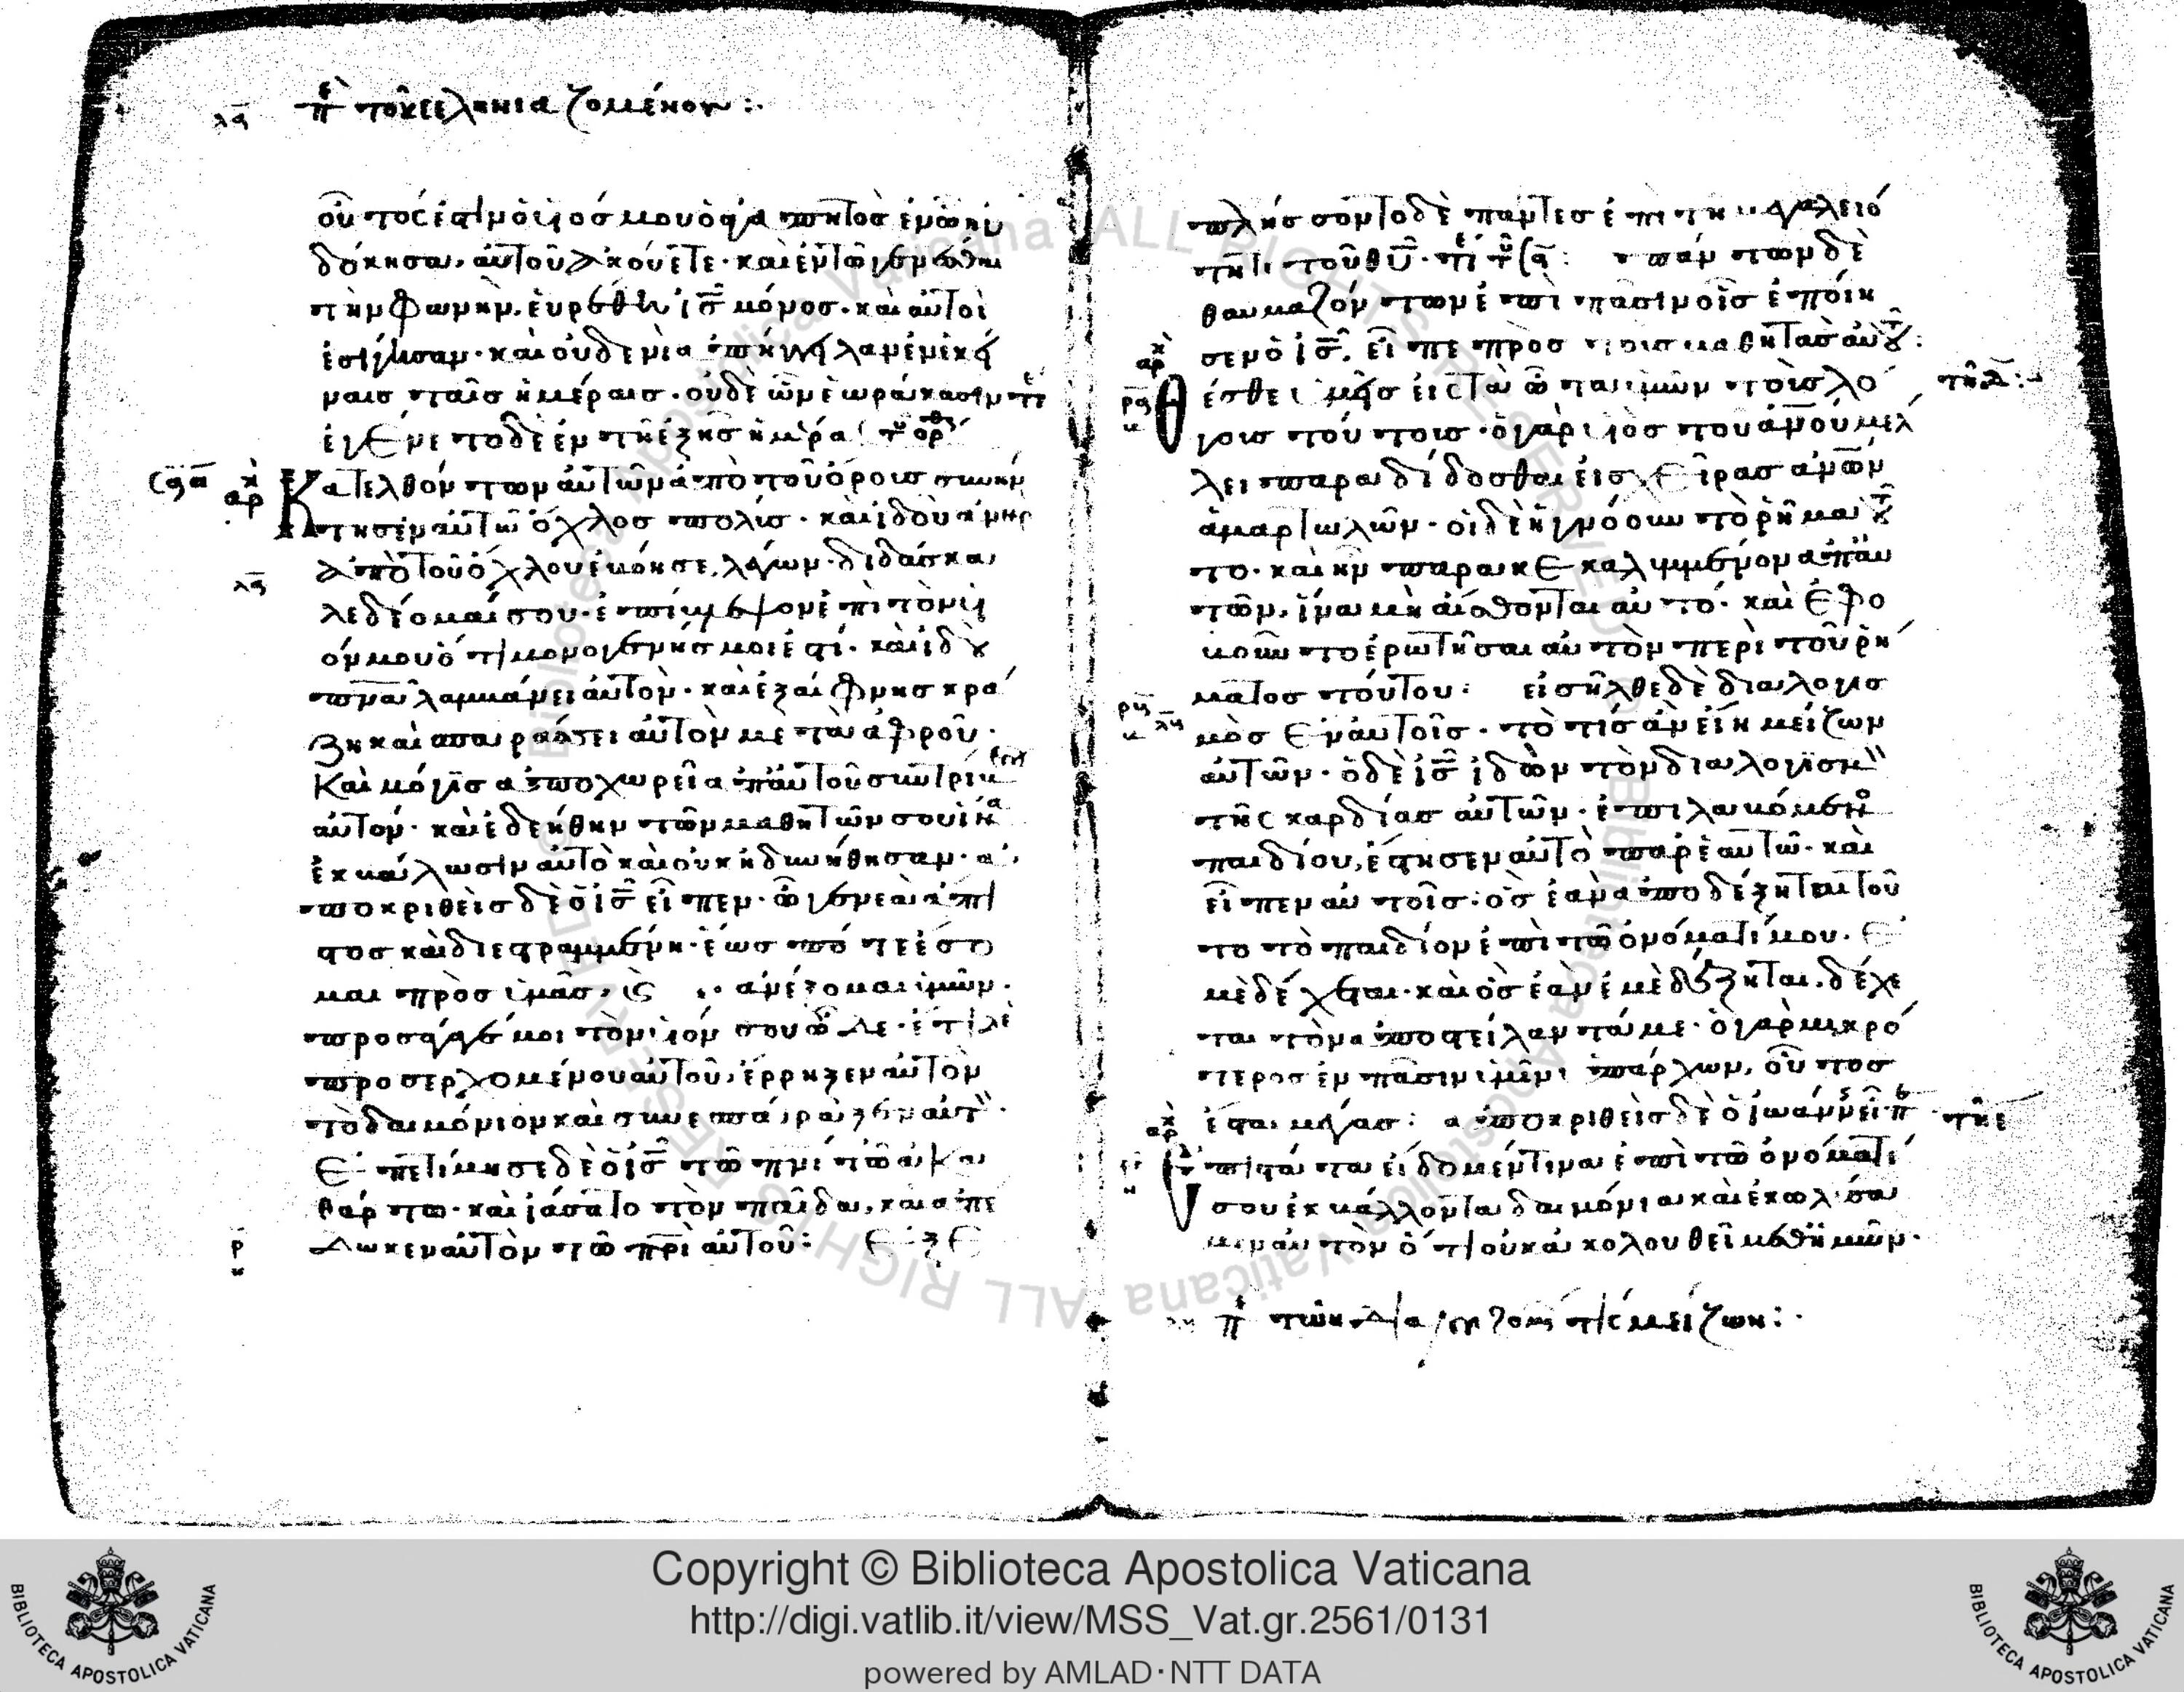 λϛ πε τοῦ σεληνιαζομένου :.
οὗτός ἐστιν ὁ ϊός μου ὁ ἀγαπητὸς ἐν ὧ ηὐ
δόκησα, αὐτοῦ ἀκούετε· καὶ ἐν τῶ γενέσθαι
τὴν φωνὴν, εὑρέθη ις μόνος. καὶ αὐτοὶ
ἐσίγησαν· καὶ οὐδενὶ ἀπήγγειλαν ἐν ἐκεί
ναις ταῖς ἡμέραις. οὐδὲν ὧν ἑωράκασιν
ἐγένετο δὲ ἐν τῆ ἑξῆς ἡμέρα
Κατελθόντων αὐτῶν ἀπὸ τοῦ ὄρους συνήν
τησεν αὐτῶ ὄχλος πολὺς. καὶ ἰδοὺ ἀνὴρ
ἀπὸ τοῦ ὄχλου ἐβόησε, λέγων· διδάσκα
λε δέομαί σου. ἐπίβλεψον ἐπὶ τὸν υἱ
όν μου ὅτι μονογενής μοι ἐστί. καὶ ἰδοὺ
πνα λαμβάνει αὐτὸν. καὶ ἐξαίφνης κρά
ζη καὶ σπαράσσει αὐτὸν μετὰ ἀφροῦ.
Καὶ μόγϊς ἀποχωρεῖ ἀπ' αὐτοῦ συντρίβον
αὐτόν· καὶ ἐδεήθην τῶν μαθητῶν σου ἵνα
ἐκβάλωσιν αὐτὸ καὶ οὐκ ἠδυνήθησαν. ἀ
ποκριθεὶς δὲ ὁ ις εἶπεν. ὦ γενεὰ ἄπι
στος καὶ διεστραμμένη. ἕως πότε ἔσο
μαι πρὸς ὑμᾶς, ἀνέξομαι ὑμῶν.
προσάγαγέ μοι τὸν ϊόν σου ὧδε. ἔτι δὲ
προσερχομένου αὐτοῦ, ἔρρηξεν αὐτὸν
τὸ δαιμόνιον καὶ συνεσπάραξεν αὐτὸν.
Ἐπετίμησε δὲ ὁ ις τῶ πνι τῶ ἀκα
θάρτω. καὶ ἰάσατο τὸν παῖδα, καὶ ἀπέ
δωκεν αὐτὸν τῶ πρὶ αὐτοῦ: Ἐξε
πλήσσοντο δὲ πάντες ἐπὶ τῆ μεγαλειό
τητι τοῦ θυ. πάντων δὲ
θαυμαζόντων ἐπὶ πᾶσιν οἷς ἐποίη
σεν ὁ ις, εἶπε πρὸς τοὺς μαθητὰς αὐτοῦ:
Θέσθε ὑμεῖς εἰς τὰ ὦτα ὑμῶν τοὺς λό
γους τούτους. ὁ γὰρ ϊὸς του ανου μέλ
λει παραδίδοσθαι εἰς χεῖρας ανων
ἁμαρτωλῶν. οἱ δὲ ἠγνόουν τὸ ρῆμα τοῦ
το. καὶ ἦν παρακεκαλυμμένον ἀπ' αὐ
τῶν, ἵνα μὴ αἴσθονται αὐτό. καὶ ἐφο
βοῦντο ἐρωτῆσαι αὐτὸν περὶ τοῦ ρή
ματος τούτου: εἰσῆλθε δὲ διαλογισ
μὸς ἐν αὐτοῖς. τὸ τίς ἂν εἴη μείζων
αὐτῶν. ὁ δὲ ις ἰδὼν τὸν διαλογϊσμὸν
τῆς καρδίας αὐτῶν. ἐπιλαβόμενος
παιδίου, ἔστησεν αὐτὸ παρ' ἑαυτῶ. καὶ
εἶπεν αὐτοῖς: ὃς ἐὰν ἀποδέξηται τοῦ
το τὸ παιδίον ἐπὶ τῶ ὀνόματί μου. ἐ
μὲ δέχεται. καὶ ὃς ἐὰν ἐμὲ δέξηται. δέχε
ται τὸν ἀποστείλαντά με. ὁ γὰρ μικρό
τερος ἐν πᾶσιν ὑμῖν ὑπάρχων, οὗτος
ἔσται μέγας: ἀποκριθεὶς δὲ ὁ ἰωάννης εἶπε
Ἐπιστάτα εἴδομέν τινα ἐπὶ τῶ ὀνόματί
σου ἐκβάλλοντα δαιμόνια καὶ ἐκωλύσα
μεν αὐτὸν ὅτι οὐκ ἀκολουθεῖ μεθ' ἡμῶν.
πε τῶν διαλογιζομένων τίς μείζων:.
Copyright © Biblioteca Apostolica Vaticana
http://digi.vatlib.it/view/MSS_Vat.gr.2561/0131
powered by AMLAD·NTT DATA